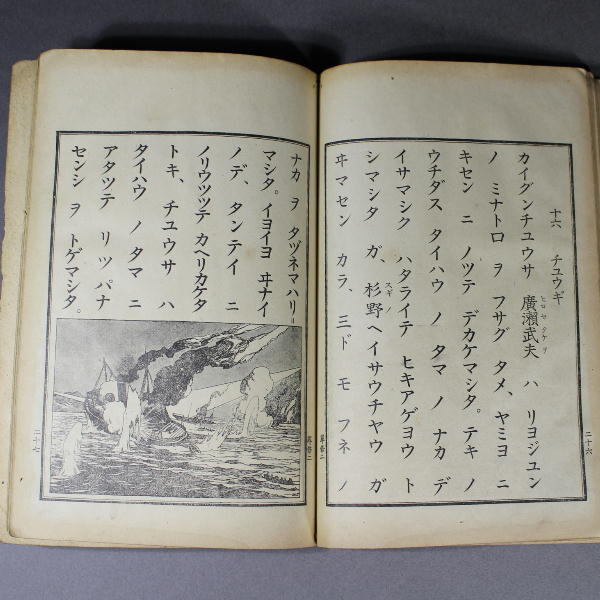 二十六
十六 チユウギ
カイグンチユウサ 廣瀬武夫 ハ リヨジユン
ヒロセタケヲ
ノ ミナト口 ヲ フサグ タメ、ヤミヨ ニ
キセン ニ ノツテ デカケマシタ。テキ ノ
ウチダス タイハウ ノ タマ ノ ナカ デ
イサマシク ハタライテ ヒキアゲヨウ ト
シマシタ ガ、杉野ヘイサウチヤウ ガ
スギノ
ヰマセン カラ、三ド モ フネ ノ
ナカ ヲ タヅネマハリ=
マシタ。イヨイヨ ヰナイ
ノデ、タンテイ ニ
ノリウツツテ カヘリカケタ
トキ、チユウサ ハ
タイハウ ノ タマ ニ
アタツテ リツパナ
センシ ヲ トゲマシタ。
二十七